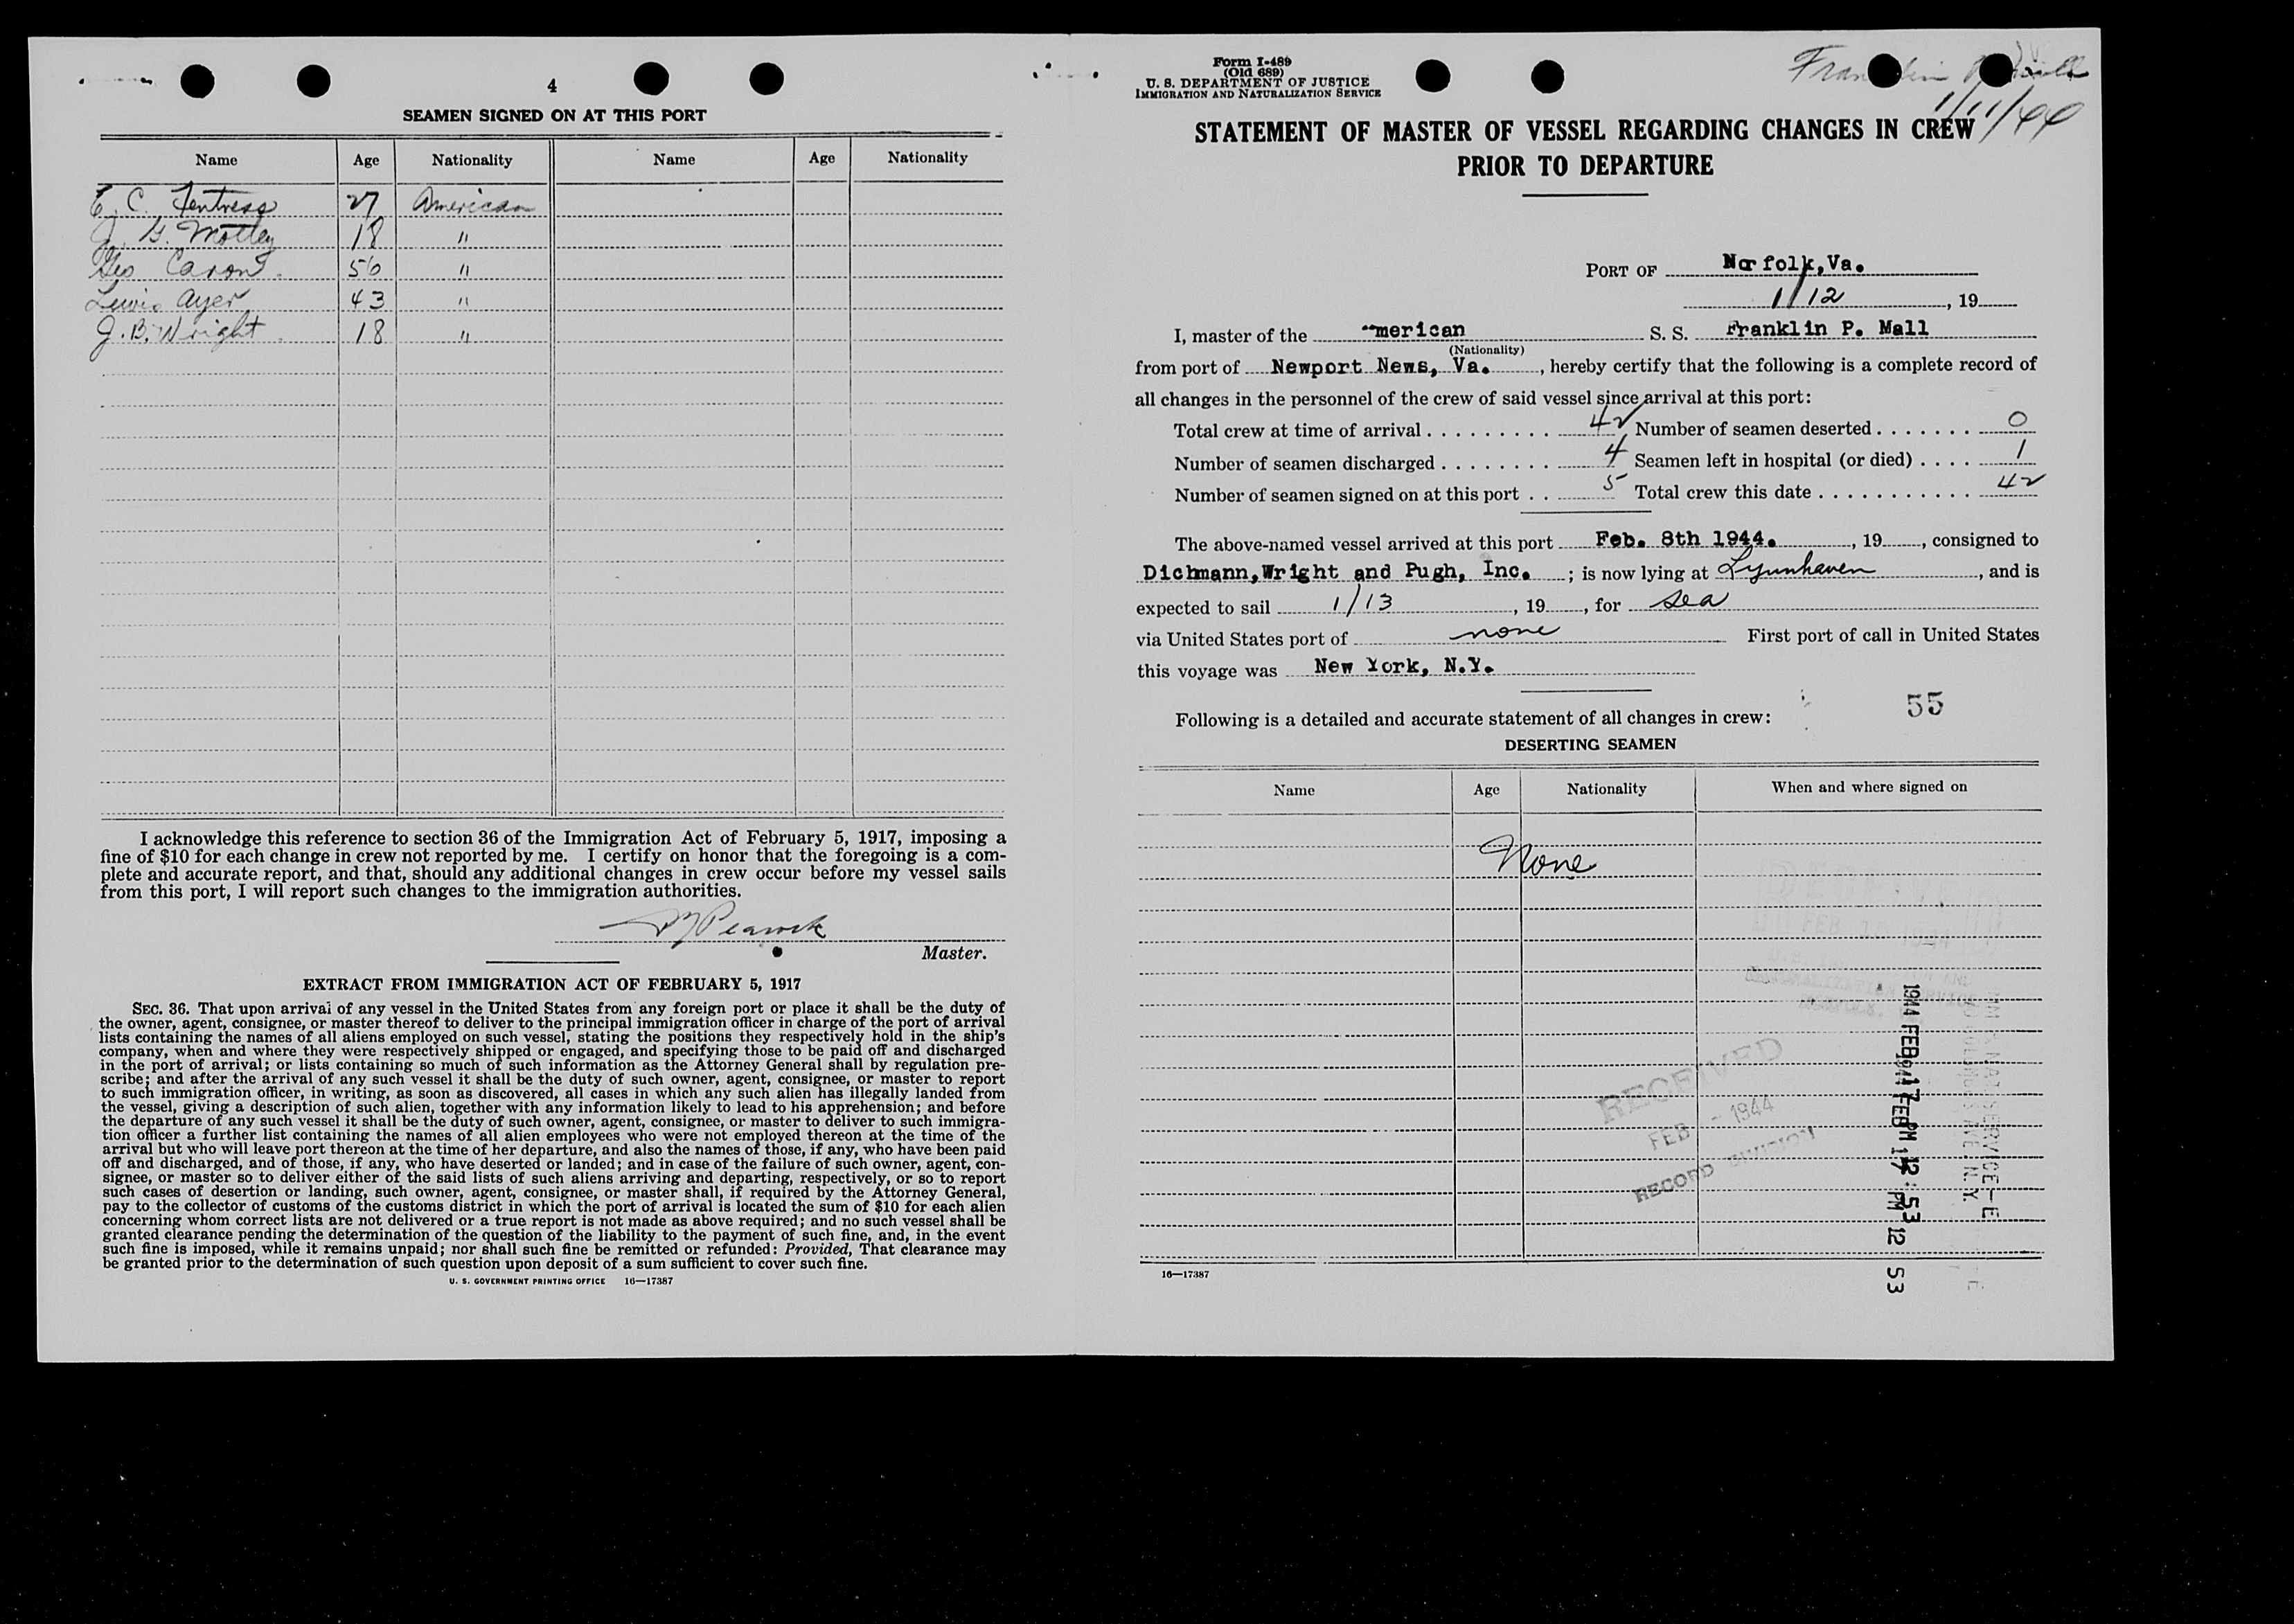 4
SEAMEN SIGNED ON AT THIS PORT
Name Age Nationality Name Age Nationality
E. C. Fentress 27 American
J. G. Motley 18 "
Geo Caron 56 "
Lewis Ayer 43 "
J. B. Wright 18 "
I acknowledge this reference to section 36 of the Immigration Act of February 5, 1917, imposing a
fine of $10 for each change in crew not reported by me. I certify on honor that the foregoing is a com-
plete and accurate report, and that, should any additional changes in crew occur before my vessel sails
from this port, I will report such changes to the immigration authorities.
Peacock
Master.
EXTRACT FROM IMMIGRATION ACT OF FEBRUARY 5, 1917
SEC. 36. That upon arrival of any vessel in the United States from any foreign port or place it shall be the duty of
the owner, agent, consignee, or master thereof to deliver to the principal immigration officer in charge of the port of arrival
lists containing the names of all aliens employed on such vessel, stating the positions they respectively hold in the ship's
company, when and where they were respectively shipped or engaged, and specifying those to be paid off and discharged
in the port of arrival; or lists containing so much of such information as the Attorney General shall by regulation pre-
scribe; and after the arrival of any such vessel it shall be the duty of such owner, agent, consignee, or master to report
to such immigration officer, in writing, as soon as discovered, all cases in which any such alien has illegally landed from
the vessel, giving a description of such alien, together with any information likely to lead to his apprehension; and before
the departure of any such vessel it shall be the duty of such owner, agent, consignee, or master to deliver to such immigra-
tion officer a further list containing the names of all alien employees who were not employed thereon at the time of the
arrival but who will leave port thereon at the time of her departure, and also the names of those, if any, who have been paid
off and discharged, and of those, if any, who have deserted or landed; and in case of the failure of such owner, agent, con-
signee, or master so to deliver either of the said lists of such aliens arriving and departing, respectively, or so to report
such cases of desertion or landing, such owner, agent, consignee, or master shall, if required by the Attorney General,
pay to the collector of customs of the customs district in which the port of arrival is located the sum of $10 for each alien
concerning whom correct lists are not delivered or a true report is not made as above required; and no such vessel shall be
granted clearance pending the determination of the question of the liability to the payment of such fine, and, in the event
such fine is imposed, while it remains unpaid; nor shall such fine be remitted or refunded: Provided, That clearance may
be granted prior to the determination of such question upon deposit of a sum sufficient to cover such fine.
U. S. GOVERNMENT PRINTING OFFICE 16—17387
Form I-489
(Old 689)
U. S. DEPARTMENT OF JUSTICE
IMMIGRATION AND NATURALIZATION SERVICE
Franklin P. Mall
1/11/44
STATEMENT OF MASTER OF VESSEL REGARDING CHANGES IN CREW
PRIOR TO DEPARTURE
PORT OF Norfolk, Va.
1/12, 19
I, master of the merican S. S. Franklin P. Mall
(Nationality)
from port of Newport News, Va., hereby certify that the following is a complete record of
all changes in the personnel of the crew of said vessel since arrival at this port:
Total crew at time of arrival 42 Number of seamen deserted 0
Number of seamen discharged 4 Seamen left in hospital (or died) 1
Number of seamen signed on at this port 5 Total crew this date 42
The above-named vessel arrived at this port Feb. 8th 1944., 19, consigned to
Dichmann, Wright and Pugh, Inc.; is now lying at Lynnhaven, and is
expected to sail 1/13, 19, for sea
via United States port of none First port of call in United States
this voyage was New York, N.Y.
55
Following is a detailed and accurate statement of all changes in crew:
DESERTING SEAMEN
Name Age Nationality When and where signed on
None
RECEIVED
FEB - 1944
RECORD DIVISION
1944 FEB 17 PM 12:53
1944 FEB 17 PM 12 53
16—17387